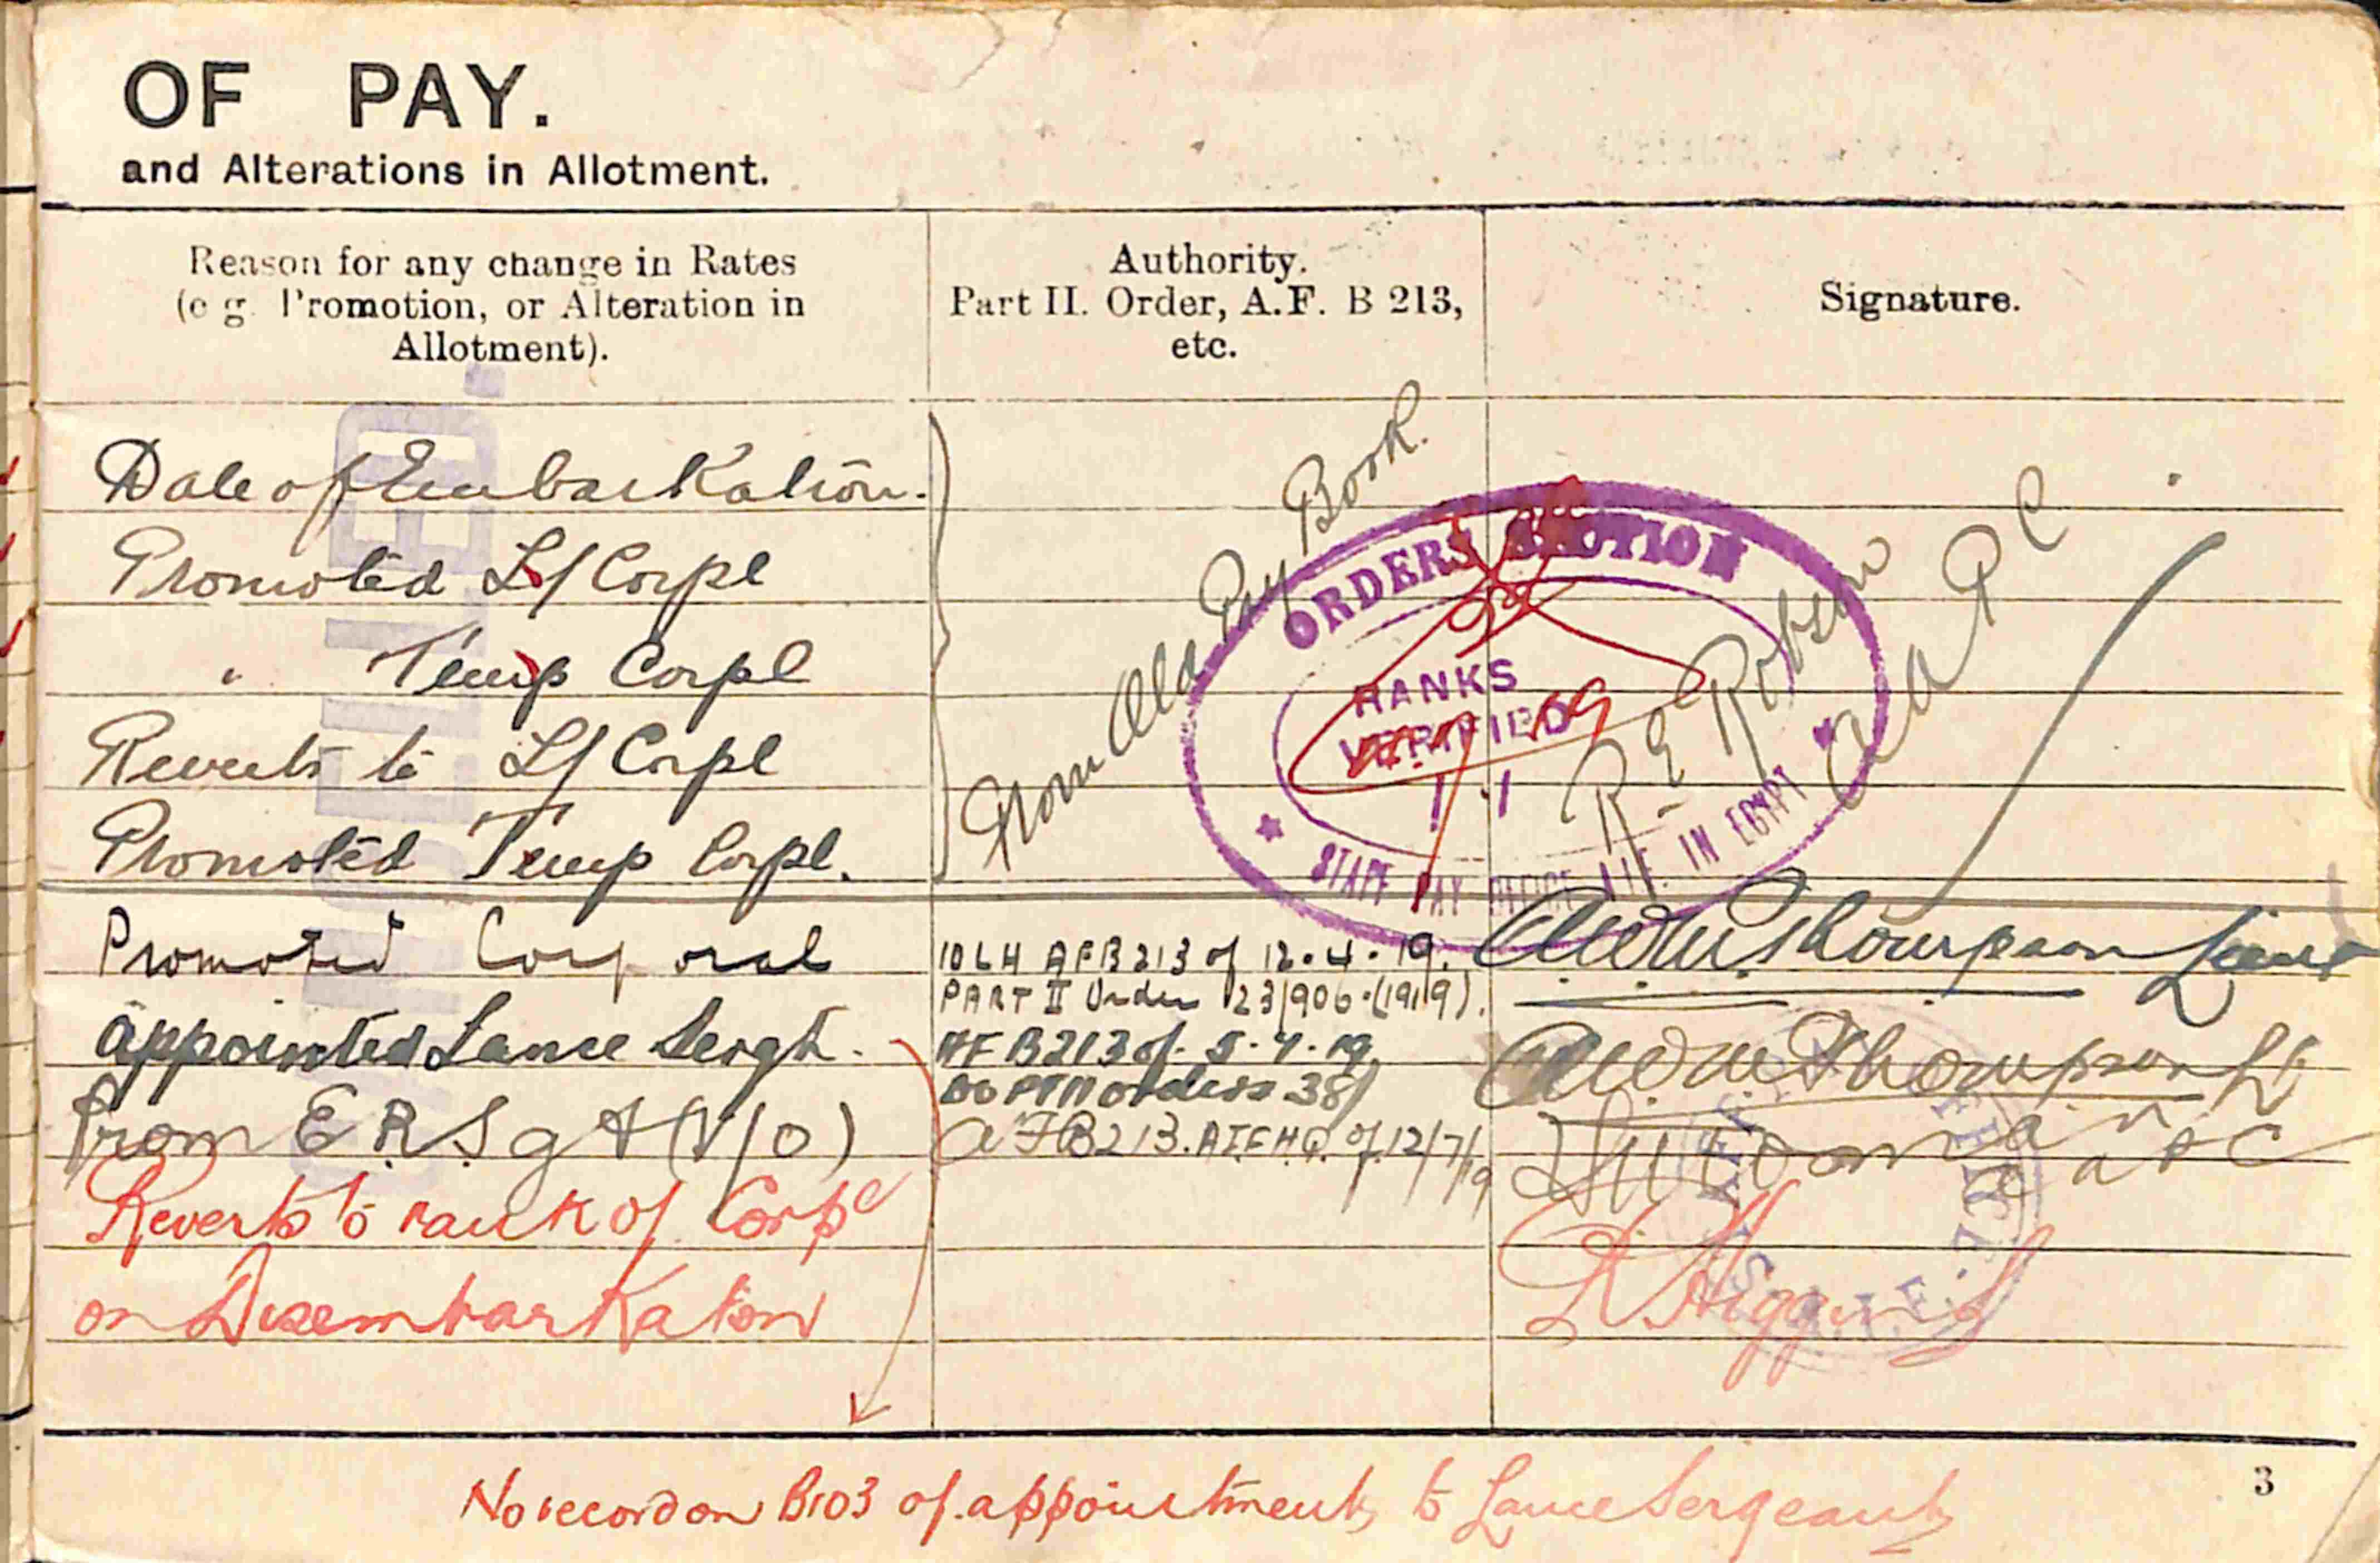 OF PAY.
and Alterations in Allotment.
Reason for any change in Rates
(e g. Promotion, or Alteration in
Allotment).
Authority.
Part II. Order, A.F. B 213,
etc.
Signature.
Date of Embarkation.
Promoted L/Corpl
" Temp Corpl
Reverts to L/Corpl
Promoted Temp Corpl.
From Old Pay Book.
ORDERS SECTION
RANKS
VERIFIED
STAFF PAY OFFICE A.I.F. IN EGYPT
R E Robson
A A P C
Promoted Corporal
10 LH AFB213 of 12.4.19.
PART II Order 23/906.(1919).
Thompson Lieut
Appointed Lance Sergt.
AF B213 of 5.4.19
orders 38/
Thompson Lt
From E R Sgt (V/O)
AFB213. AIF HQ. of 12/7/19
A A P C
Reverts to rank of Corpl
on Disembarkation
Higgins
3
No record on B103 of appointment to Lance Sergeant